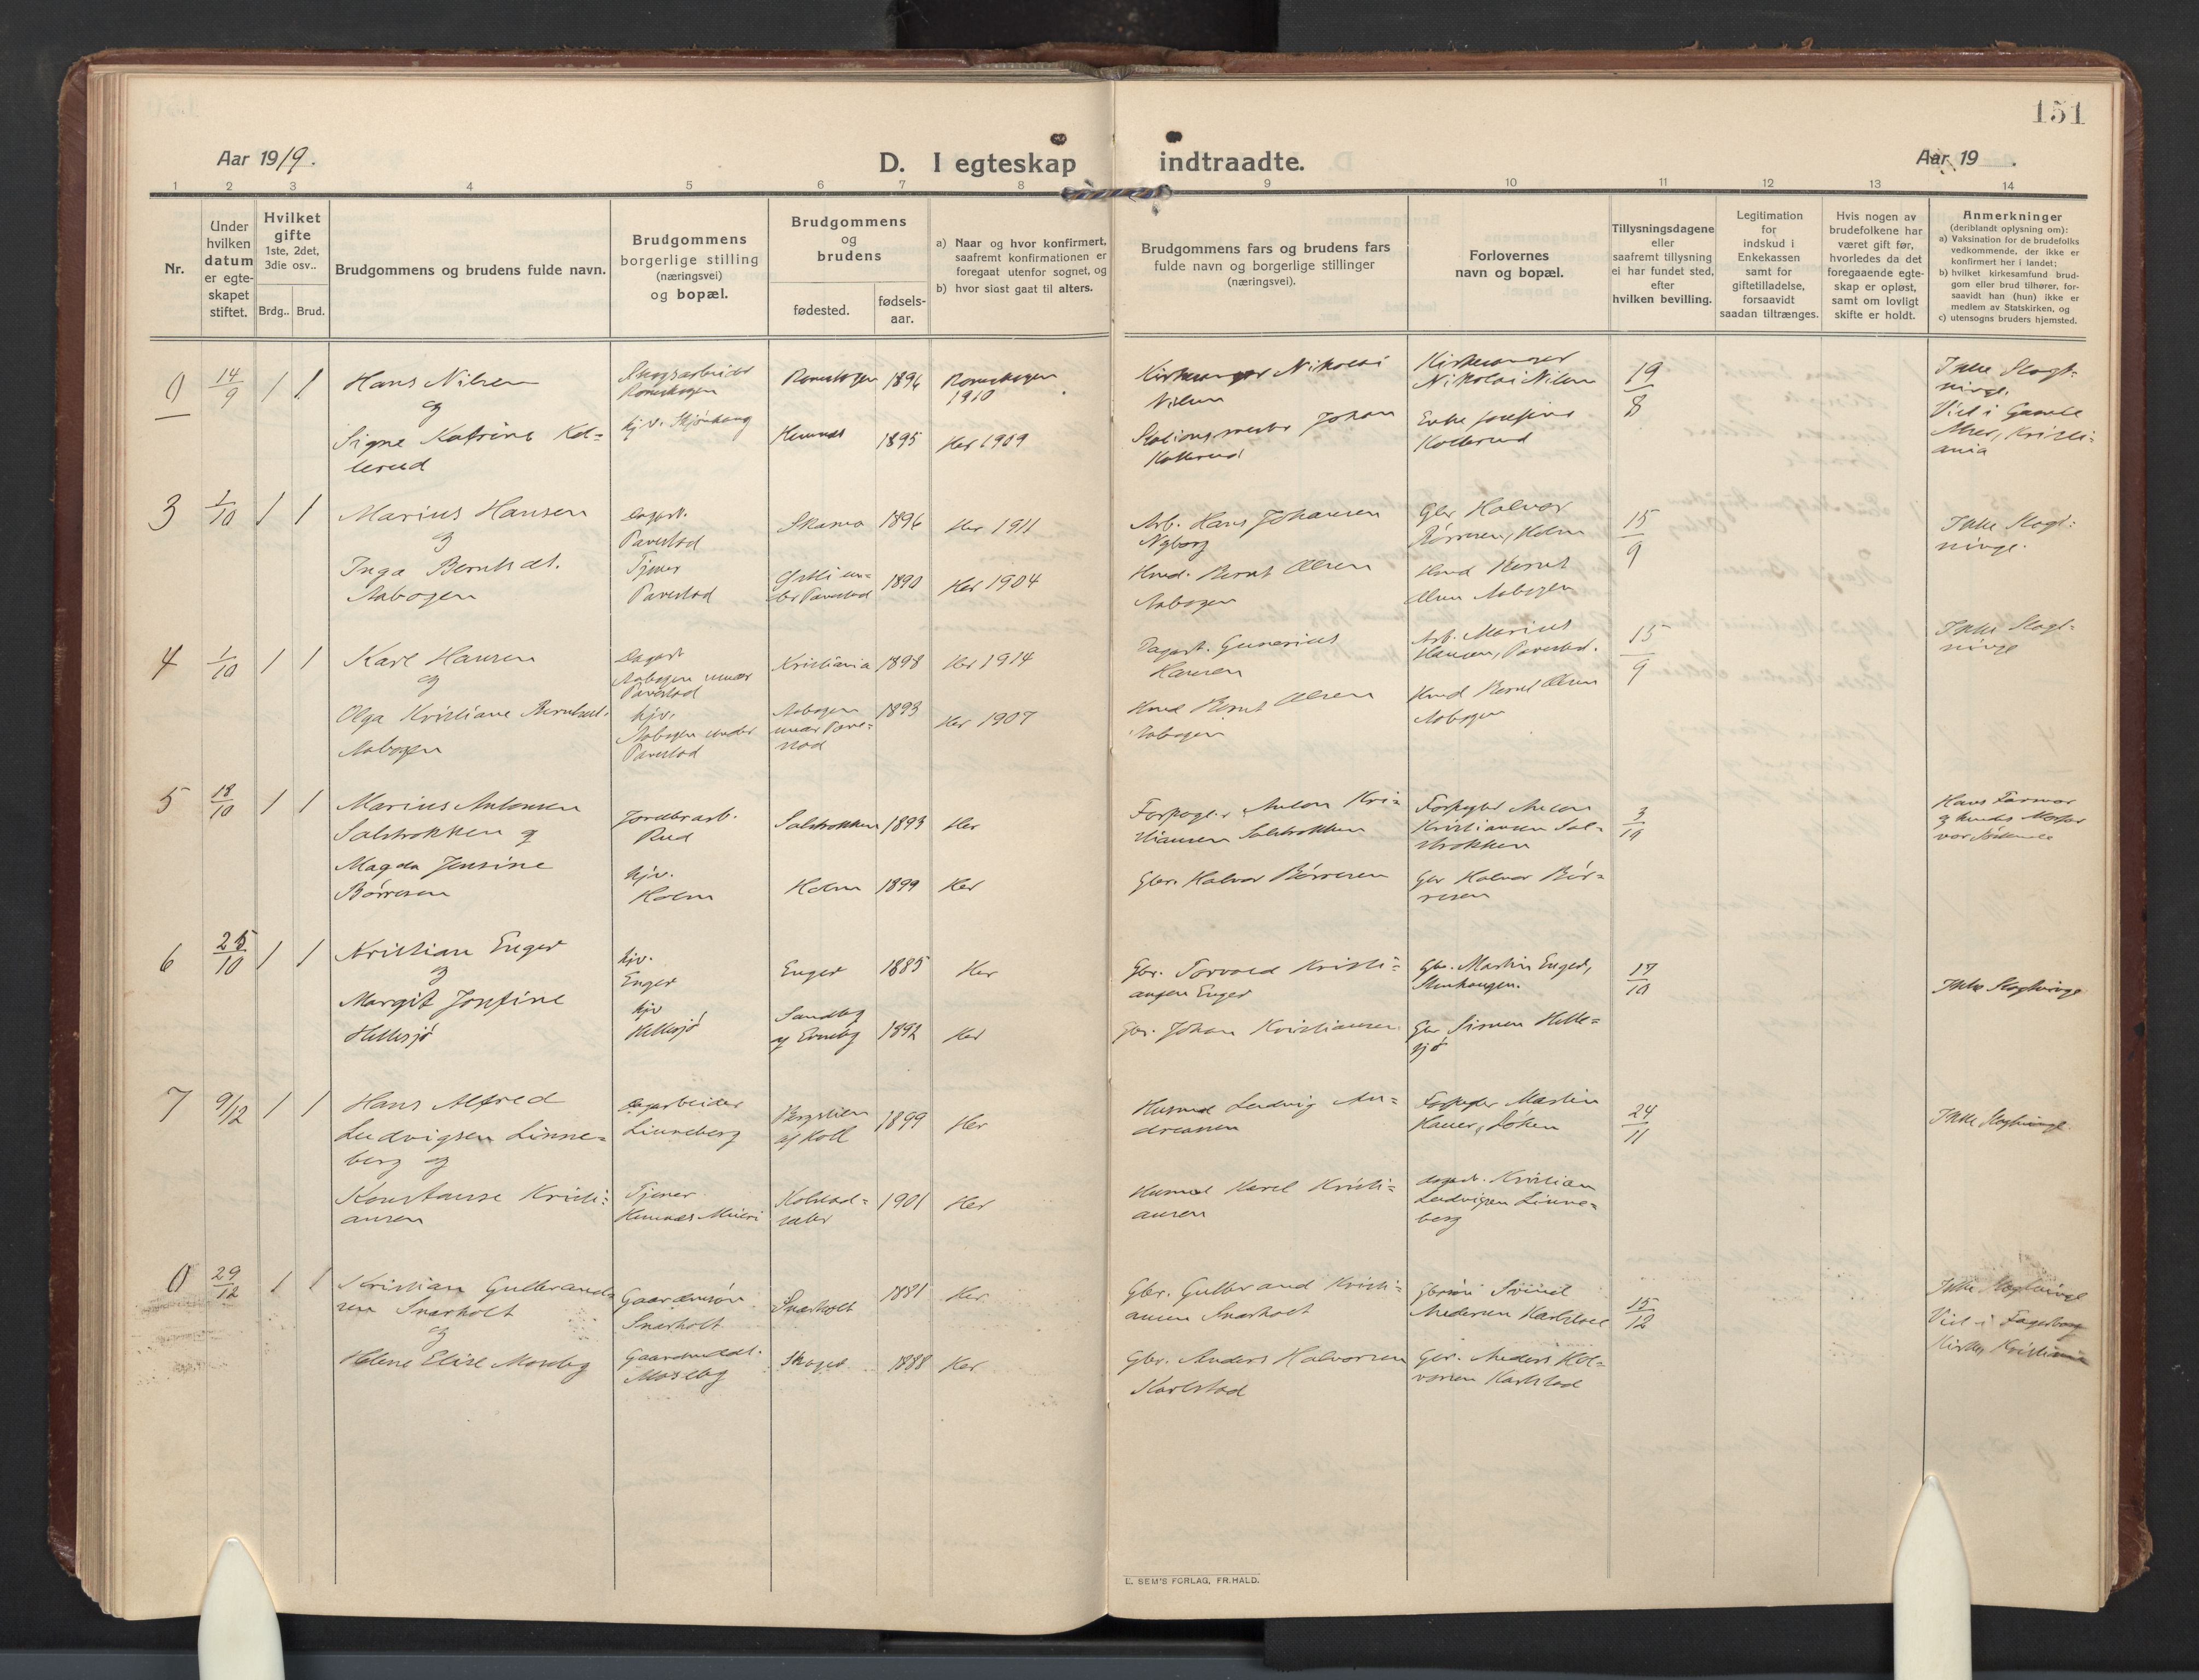 151
Aar 1919.
D. I egteskap indtraadte.
Aar 19 .
1 2 3 4 5 6 7 8 9 10 11 12 13 14
Nr.
Under
hvilken
datum
er egte-
skapet
stiftet.
Hvilket
gifte
1ste, 2det,
3die osv..
Brdg.. Brud.
Brudgommens og brudens fulde navn.
Brudgommens
borgerlige stilling
(næringsvei)
og bopæl.
Brudgommens
og
brudens
fødested.
fødsels-
aar.
a) Naar og hvor konfirmert,
saafremt konfirmationen er
foregaat utenfor sognet, og
b) hvor sidst gaat til alters.
Brudgommens fars og brudens fars
fulde navn og borgerlige stillinger
(næringsvei).
Forlovernes
navn og bopæl.
Tillysningsdagene
eller
saafremt tillysning
ei har fundet sted,
efter
hvilken bevilling.
Legitimation
for
indskud i
Enkekassen
samt for
giftetilladelse,
forsaavidt
saadan tiltrænges.
Hvis nogen av
brudefolkene har
været gift før,
hvorledes da det
foregaaende egte-
skap er opløst,
samt om lovligt
skifte er holdt.
Anmerkninger
(deriblandt oplysning om):
a) Vaksination for de brudefolks
vedkommende, der ikke er
konfirmert her i landet;
b) hvilket kirkesamfund brud-
gom eller brud tilhører, for-
saavidt han (hun) ikke er
medlem av Statskirken, og
c) utensogns bruders hjemsted.
0 14/9 1 1
Hans Nilsen
og
Signe Katrine Kol=
lerud
Skogsarbeider
Romskogen
Romskogen 1896
Romskogen
1910
Hemnes 1895 Her 1909
Kirkesanger Nikolai
Nilsen
Stationsmester Johan
Kollerud
Kirkesanger
Nikolai Nilsen
Enke Josefine
Kollerud
19/8
Ikke Slegt-
ninge.
Viet i Gamle
Aker, Kristi-
ania
3 1/10 1 1
Marius Hansen
og
Inga Berntsdt.
Aabogen
Dagarb.
Parestad
Tjener
Parestad
1896 Her 1911
1890 Her 1904
Arb. Hans Johansen
Nyborg
Husmd. Bernt Olsen
Aabogen
Gbr Halvor
Børresen, Holm
Husmd Bernt
Olsen Aabogen
15/9
Ikke Slegt-
ninge.
4 1/10 1 1
Karl Hansen
og
Olga Kristiane Berntsdt.
Aabogen
Dagarb
Aabogen under
Parestad
hjv.
Aabogen under
Parestad
Kristiania 1898 Her 1914
Aabogen
under Pare-
stad
1893 Her 1907
Dagarb. Gunerius
Hansen
Husmd Bernt Olsen
Aabogen
Arb. Marius
Hansen, Parestad.
Husmd Bernt Olsen
Aabogen
15/9
Ikke Slegt-
ninge
5 18/10 1 1
Marius Antonsen
Salstrokken og
Magda Jensine
Børresen
Jordbr.arb.
Rud
hjv.
Holm
Salstrokken 1893 Her
Holm 1899 Her
Forpagter Anton Kri=
stiansen Salstrokken
Gbr. Halvor Børresen
Forpagter Anton
Kristiansen Sal=
strokken
Gbr Halvor Bør=
resen
Hans Farmor
og hendes Morfar
var Søskende
6 25/10 1 1
Kristian Enger
og
Margit Josefine
Hellesjø
hjv.
Enger
hjv
Hellesjø
Enger 1885 Her
1892 Her
Gbr. Torvald Kristi=
ansen Enger
Gbr. Johan Kristiansen
Gbr. Martin Enger,
Stenhaugen.
Gbr Simen Helle=
sjø
17/10
Ikke Slegtninge
7 9/12 1 1
Hans Alfred
Ludvigsen Linne=
berg og
Konstanse Kristi=
ansen
Dagarbeider
Linneberg
Tjener
1899 Her
1901 Her
Husmd Ludvig An=
dreassen
Husmd Karel Kristi=
ansen
Forpagter Martin
dagarb. Kristian
Ludvigsen Linne=
berg
24/11
Ikke Slegtninge.
0 29/12 1 1
Kristian Gulbrand=
sen Snarholt
og
Helene Elise Moseby
Gaardmsøn
Snarholt
Gaardmddt.
Moseby
Snarholt 1881 Her
1888 Her
Gbr. Gulbrand Kristi=
ansen Snarholt
Gbr. Anders Halvorsen
Karlstad
Andersen Karlstad
Gbr. Anders Hal=
vorsen Karlstad
15/12
Ikke Slegtninge
Viet i Fagerborg
Kirke, Kristiania
E. SEM'S FORLAG, FR.HALD.